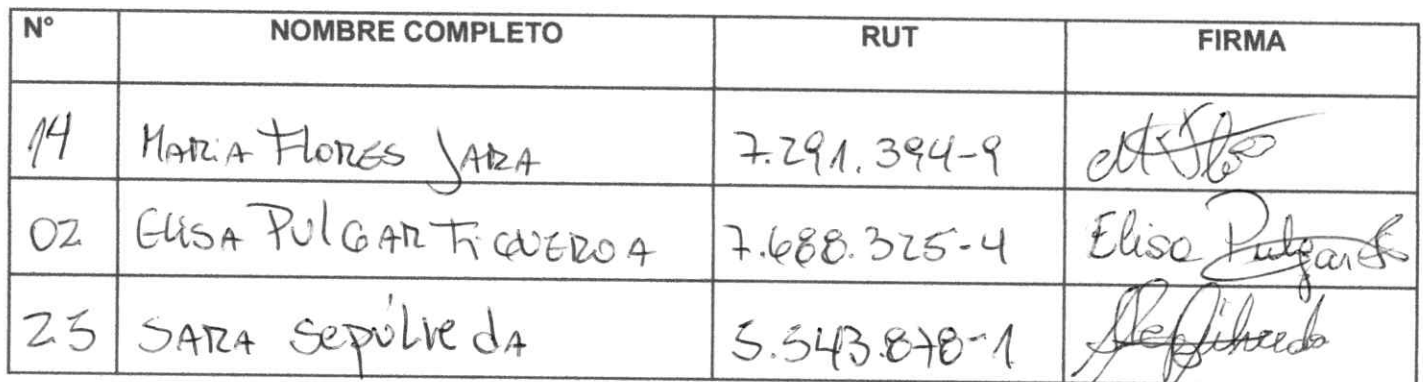 N° NOMBRE COMPLETO RUT FIRMA
14 MARIA FLORES JARA 7.291.394-9
02 ELISA PULGAR FIGUEROA 7.688.325-4 Elisa Pulgar
25 SARA SEPÚLVEDA 5.543.878-1 Sepúlveda